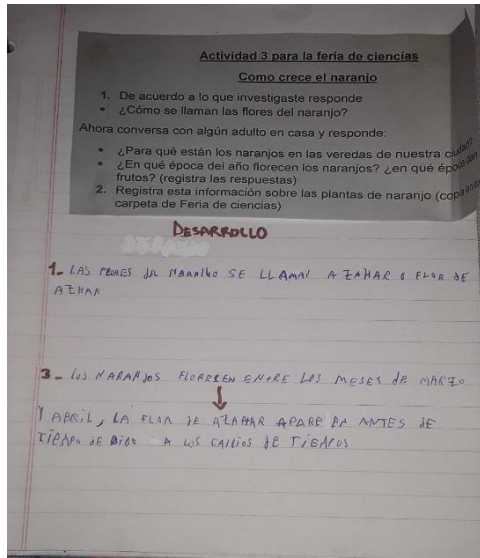 Actividad 3 para la feria de ciencias
Como crece el naranjo
1. De acuerdo a lo que investigaste responde
• ¿Cómo se llaman las flores del naranjo?
Ahora conversa con algún adulto en casa y responde:
• ¿Para qué están los naranjos en las veredas de nuestra ciudad?
• ¿En qué época del año florecen los naranjos? ¿en qué época dan
frutos? (registra las respuestas)
2. Registra esta información sobre las plantas de naranjo (copia en la
carpeta de Feria de ciencias)
DESARROLLO
1- LAS FLORES DEL NARANJO SE LLAMAN AZAHAR O FLOR DE
AZHAR
3- LOS NARANJOS FLORECEN ENTRE LOS MESES DE MARZO
Y ABRIL, LA FLOR DE AZAHAR APARE EN ANTES DE
TIEMPO DE A LOS DE TIEMPOS